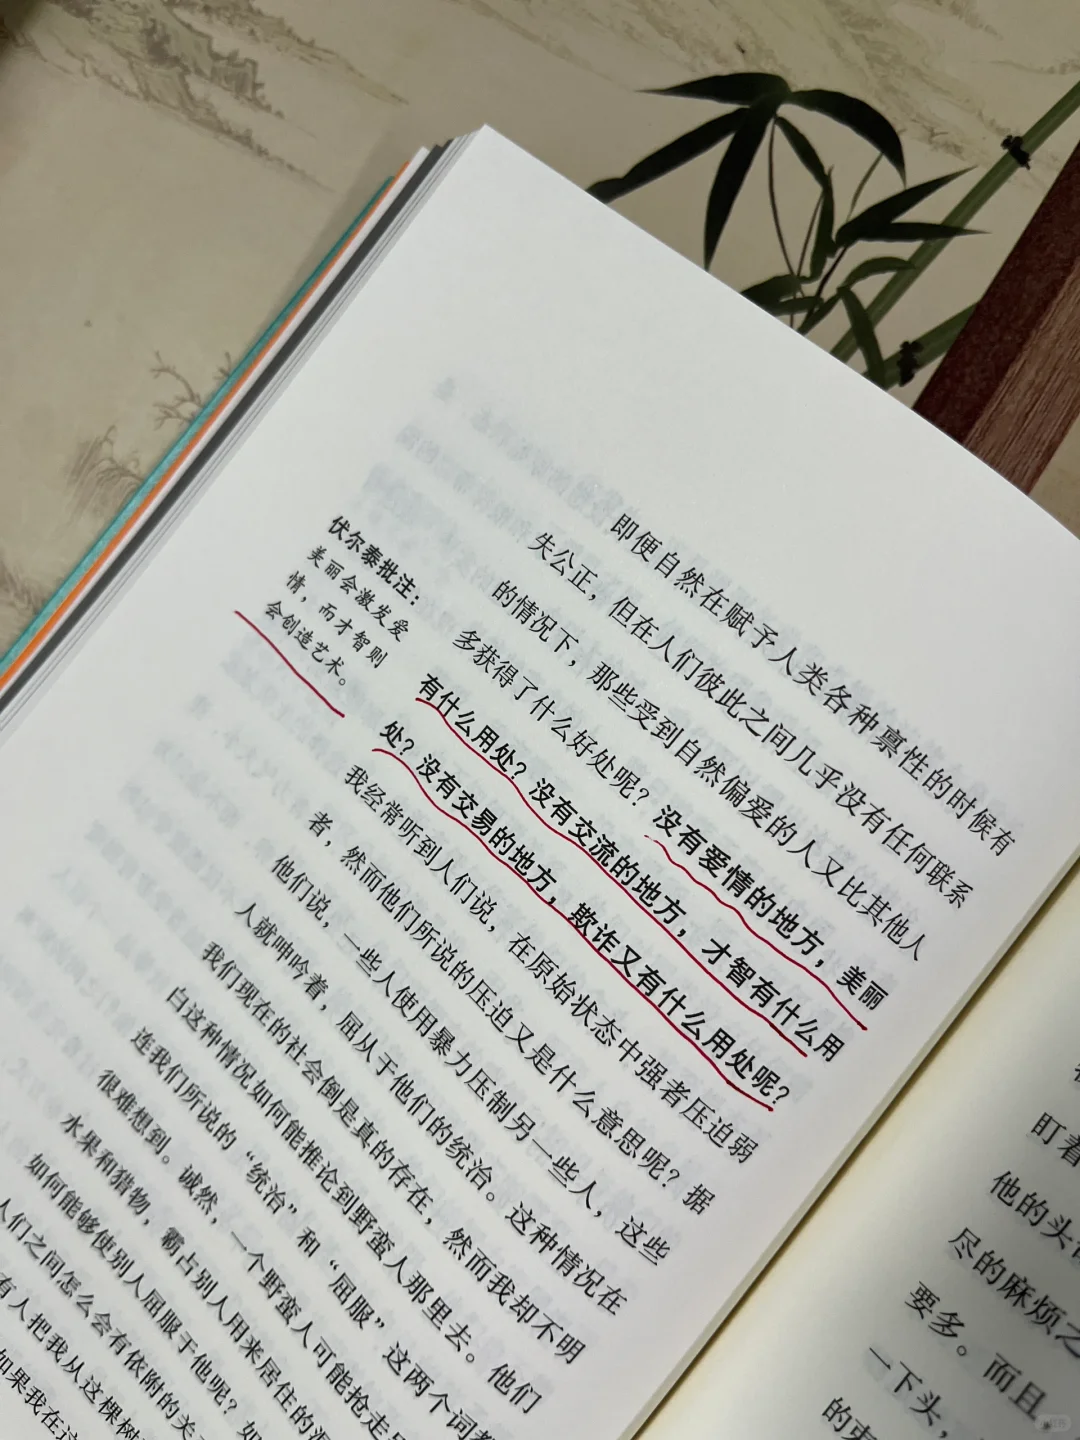 即便自然在赋予人类各种禀性的时候有
失公正，但在人们彼此之间几乎没有任何联系
的情况下，那些受到自然偏爱的人又比其他人
多获得了什么好处呢？没有爱情的地方，美丽
有什么用处？没有交流的地方，才智有什么用
处？没有交易的地方，欺诈又有什么用处呢？
伏尔泰批注：
美丽会激发爱
情，而才智则
会创造艺术。
我经常听到人们说，在原始状态中强者压迫弱
者，然而他们所说的压迫又是什么意思呢？据
他们说，一些人使用暴力压制另一些人，这些
人就呻吟着，屈从于他们的统治。这种情况在
我们现在的社会倒是真的存在，然而我却不明
白这种情况如何能推论到野蛮人那里去。他们
连我们所说的“统治”和“屈服”这两个词都
很难想到。诚然，一个野蛮人可能抢走
水果和猎物，霸占别人用来居住的洞
如何能够使别人屈服于他呢？如
人们之间怎么会有依附的关
有人把我从这棵树
如果我在这
盯着
他的头
尽的麻烦之
要多。而且，
一下头，
的束